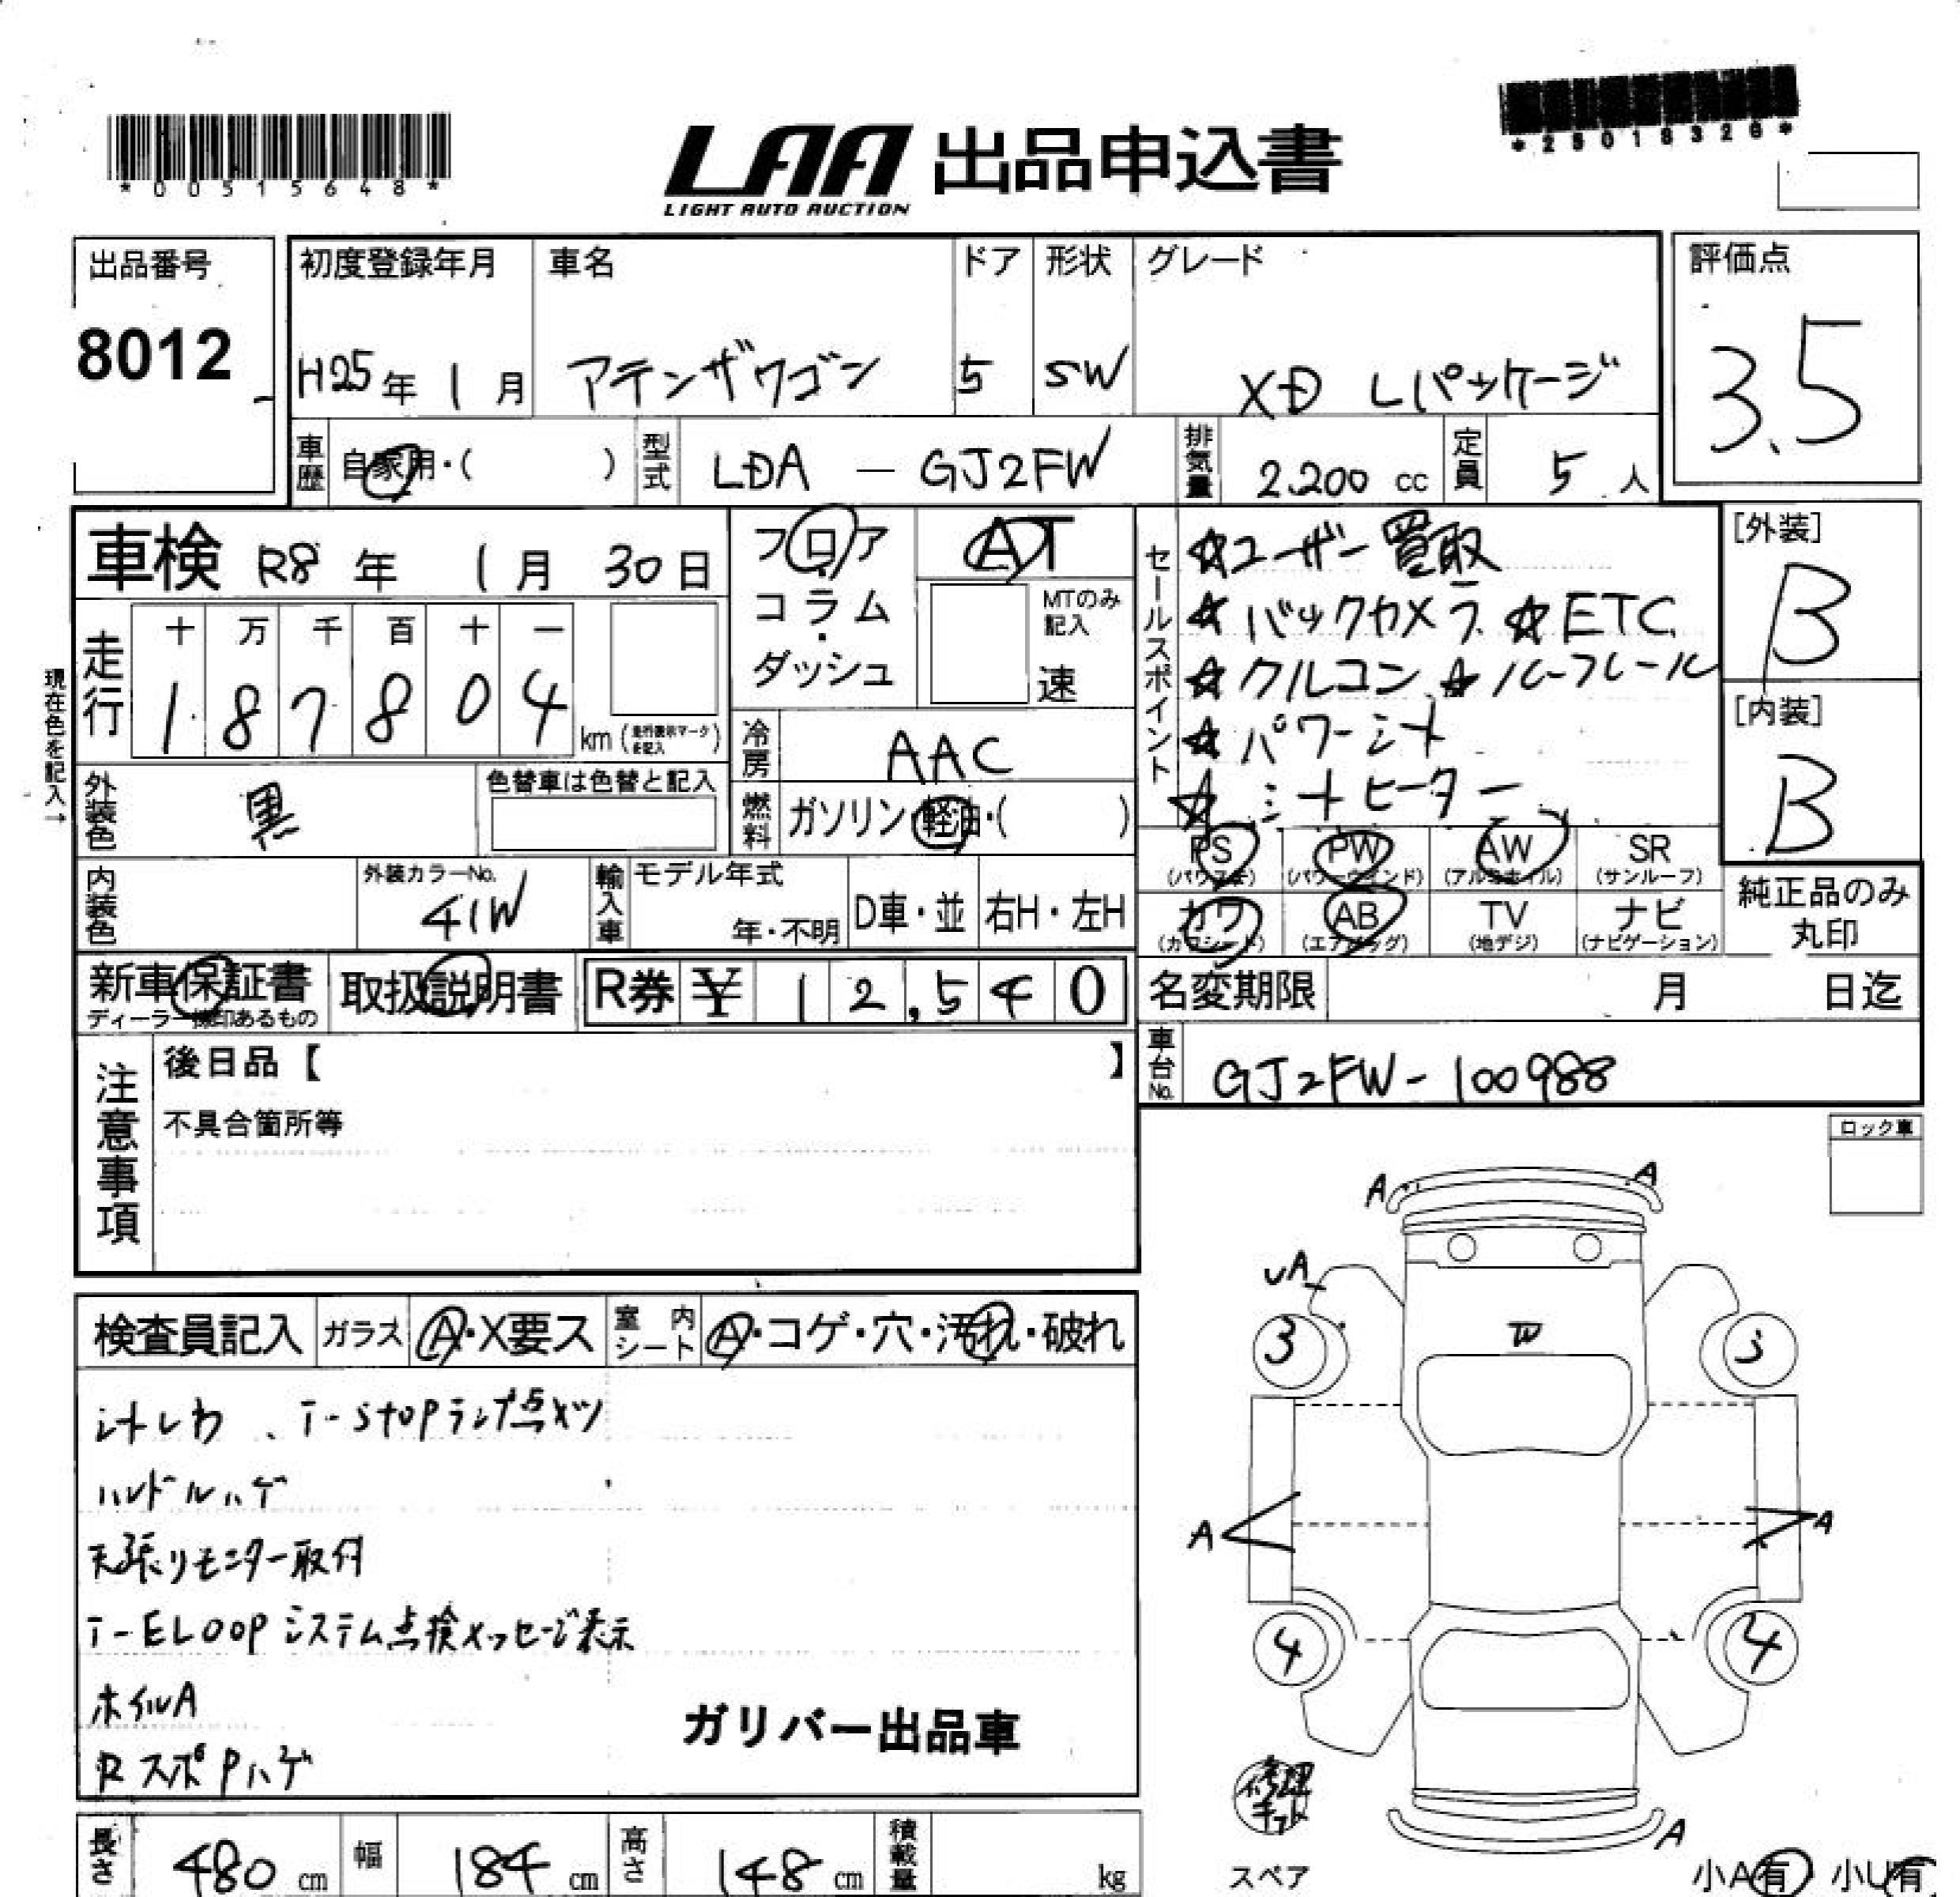 *00515648*
LAA 出品申込書
LIGHT AUTO AUCTION
*25018326*
出品番号
8012
初度登録年月
H25年 1月
車名
アテンザワゴン
ドア
5
形状
SW
グレード
XD Lパッケージ
評価点
3.5
車歴
自家用・( )
型式
LDA - GJ2FW
排気量
2.200 cc
定員
5 人
車検 R8年 1月 30日
フロア・コラム・ダッシュ
AT
MTのみ記入
速
セールスポイント
☆ユーザー買取
☆バックカメラ ☆ETC
☆クルコン ☆ルーフレール
☆パワーシート
☆シートヒーター
[外装]
B
[内装]
B
現在色を記入→
走行
十 万 千 百 十 一
1 8 7 8 0 4 km (走行表示マークを記入)
冷房
AAC
燃料
ガソリン・軽油・( )
外装色
黒
色替車は色替と記入
内装色
外装カラーNo.
41W
輸入車
モデル年式
年・不明
D車・並
右H・左H
PS (パワステ)
PW (パワーウインド)
AW (アルミホイル)
SR (サンルーフ)
カワ (カワシート)
AB (エアバッグ)
TV (地デジ)
ナビ (ナビゲーション)
純正品のみ丸印
新車保証書
ディーラー捺印あるもの
取扱説明書
R券 ¥ 12,540
名変期限 月 日迄
車台No.
GJ2FW-100988
注意事項
後日品【 】
不具合箇所等
ロック車
検査員記入
ガラス
A・X要ス
室内シート
A・コゲ・穴・汚れ・破れ
シートシワ、i-stopランプ点メツ
ハンドルハゲ
天張りモニター取付
i-ELOOPシステム点検メッセージ表示
ホイルA
RスポPハゲ
ガリバー出品車
A
A
UA
3
W
3
A
A
4
4
A
修理キット
スペア
小A有 小U有
長さ
480 cm
幅
184 cm
高さ
148 cm
積載量
kg